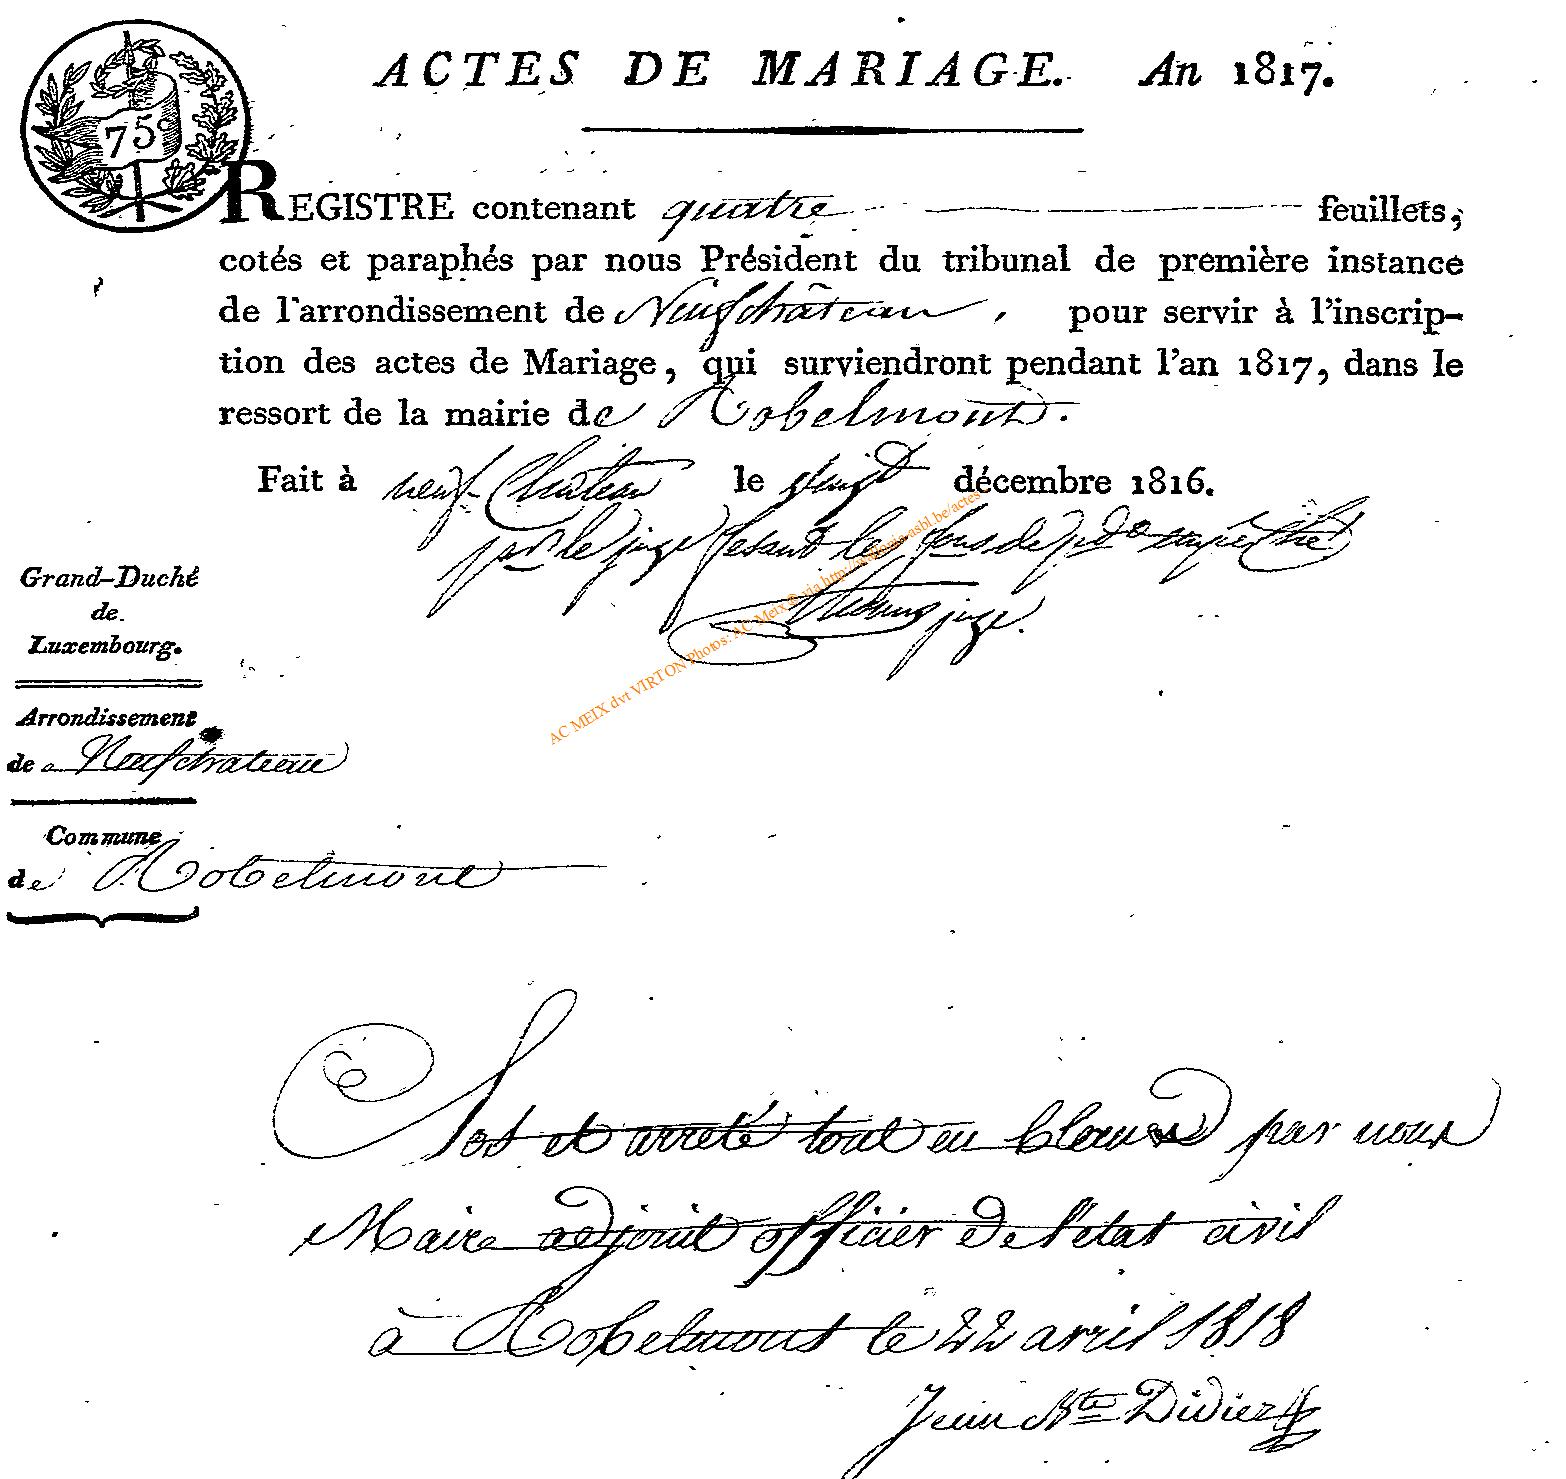 ACTES DE MARIAGE. An 1817.
75c
REGISTRE contenant quatre feuillets,
cotés et paraphés par nous Président du tribunal de première instance
de l'arrondissement de Neufchâteau, pour servir à l'inscrip-
tion des actes de Mariage, qui surviendront pendant l'an 1817, dans le
ressort de la mairie de Robelmont.
Fait à neuf-Château le vingt décembre 1816.
par le juge fesant les fons de pdt empêché
juge.
Grand-Duché
de
Luxembourg.
Arrondissement
de Neufchateau
Commune
de Robelmont
AC MEIX dvt VIRTON Photos: AC Meix & via http://asbl.be/actes
Clos et arreté tout en blanc par nous
Maire adjoint officier de l'etat civil
à Robelmont le 22 avril 1818
Jean Bte Didier